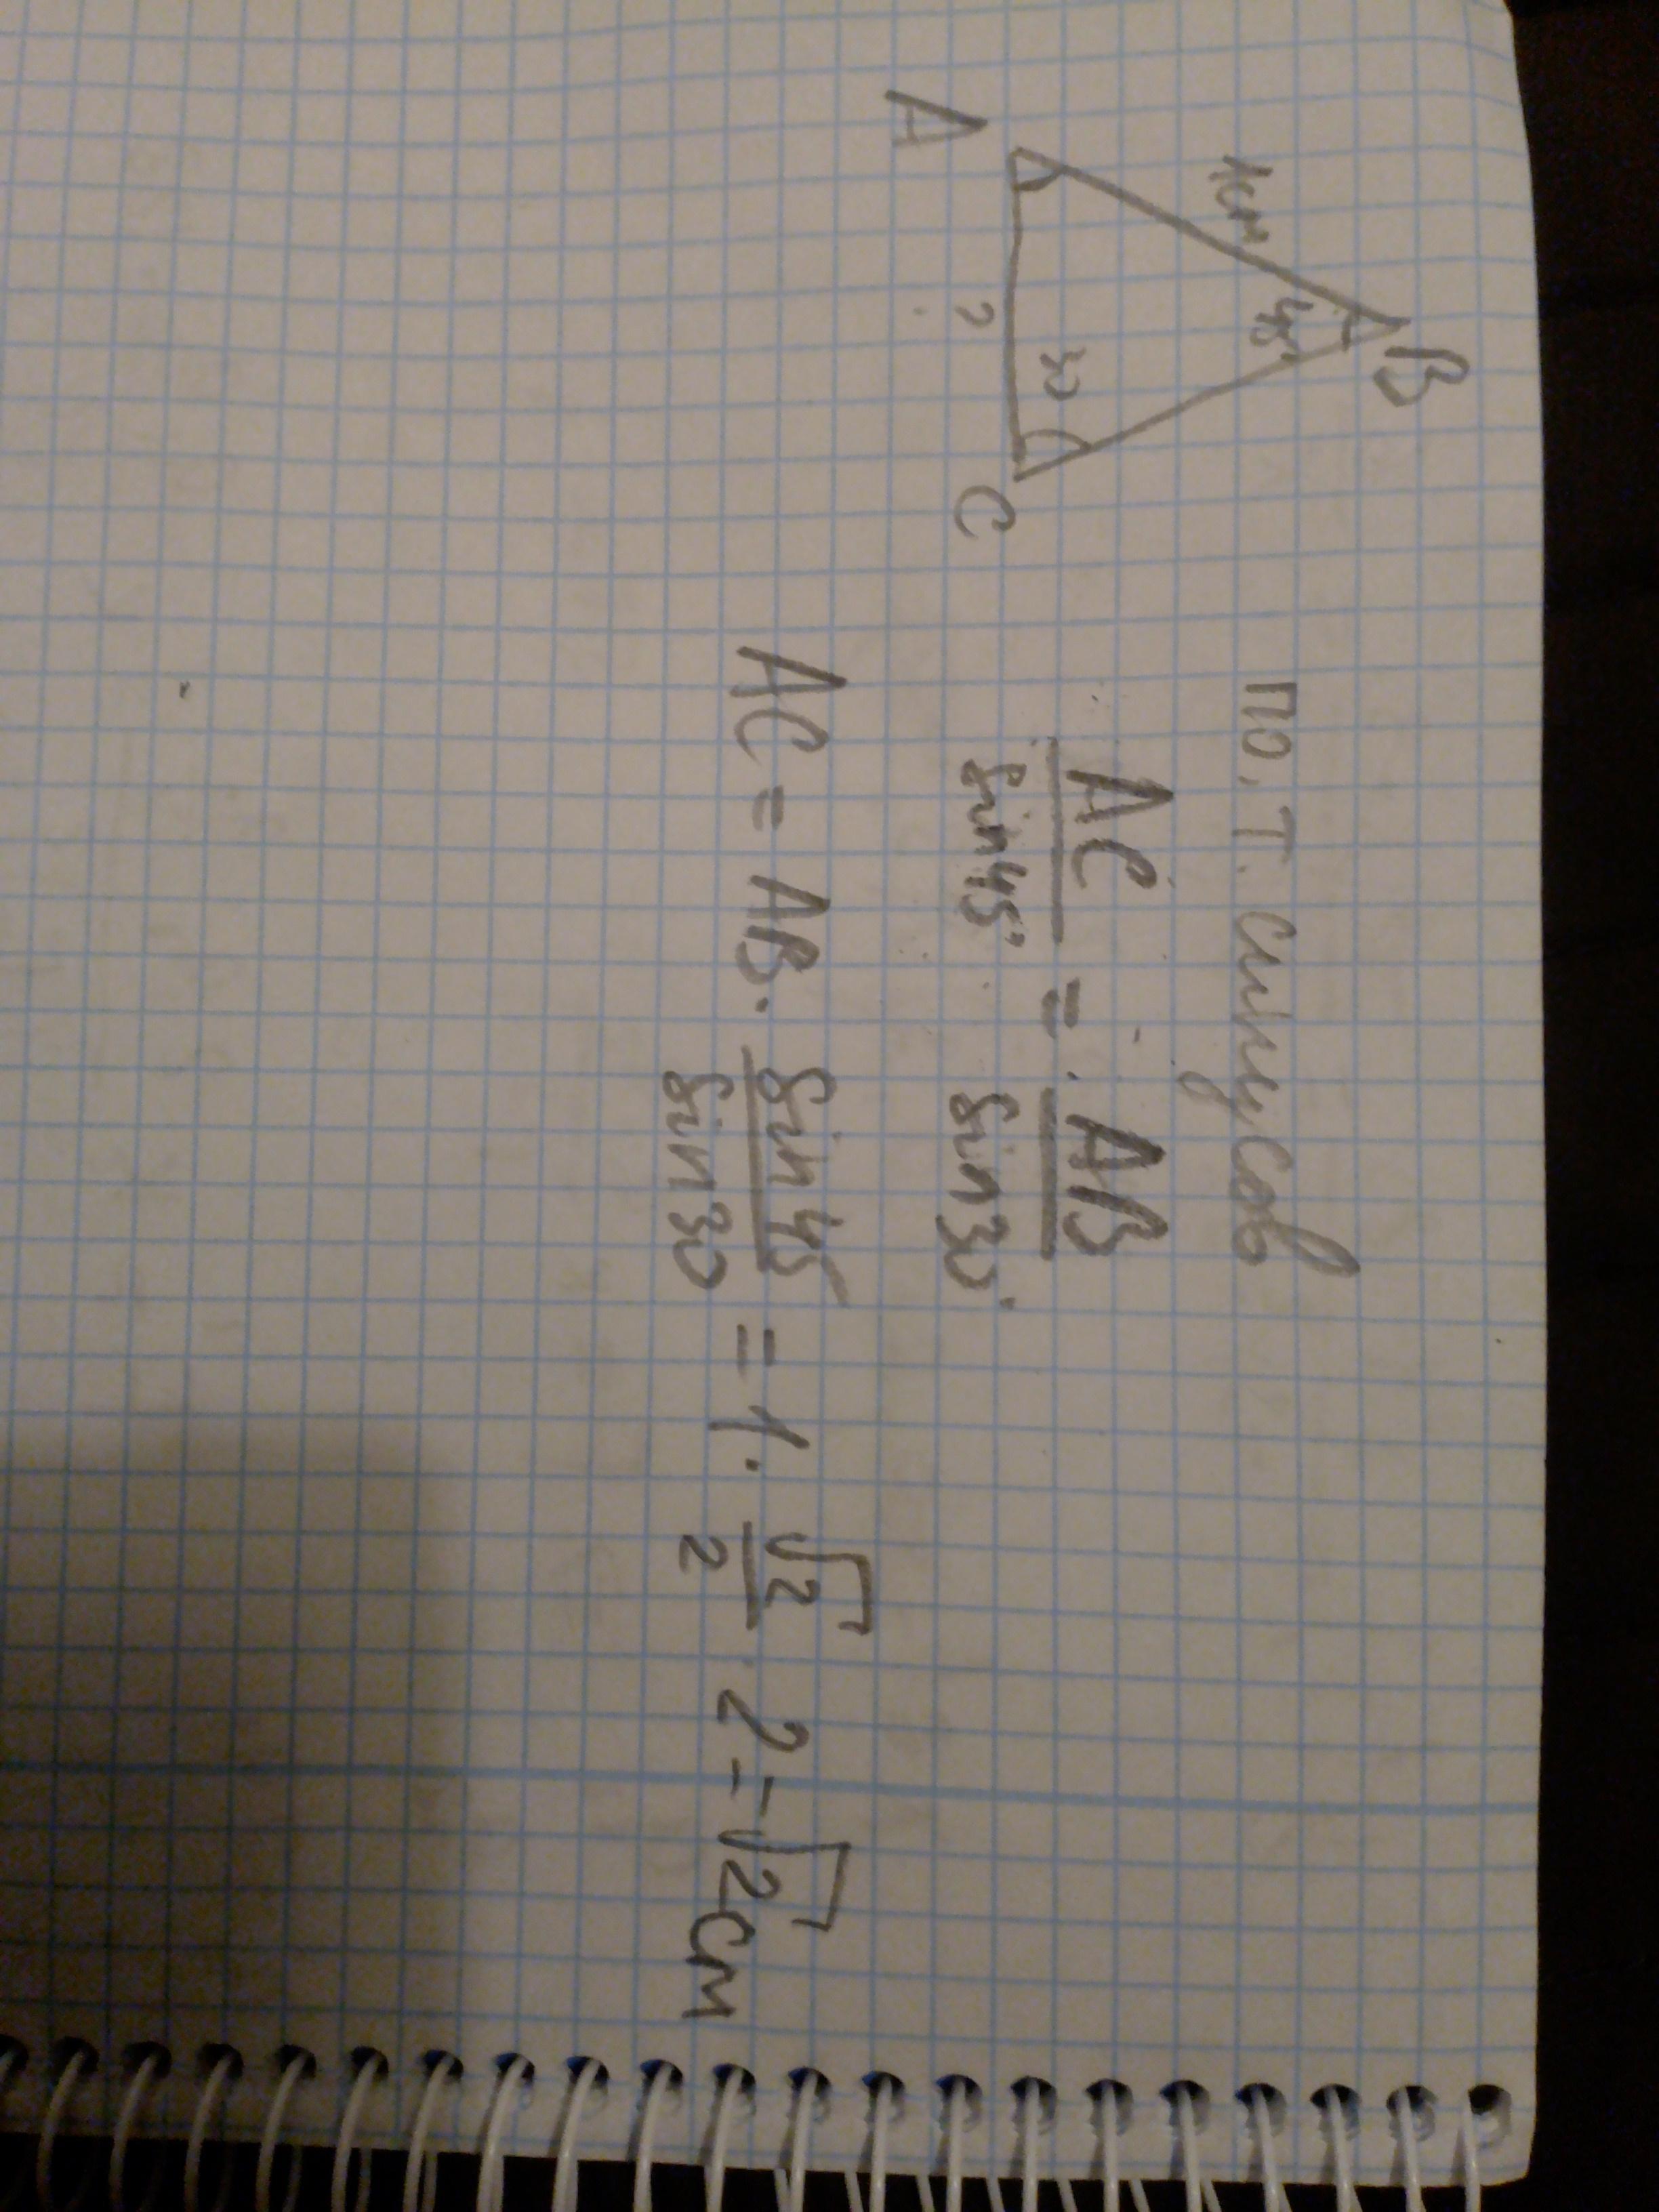 B
1см 45°
30
A ? C
по. т. синусов
AC/sin45° = AB/sin30°
AC = AB · sin45/sin30 = 1 · √2/2 · 2 = √2 см